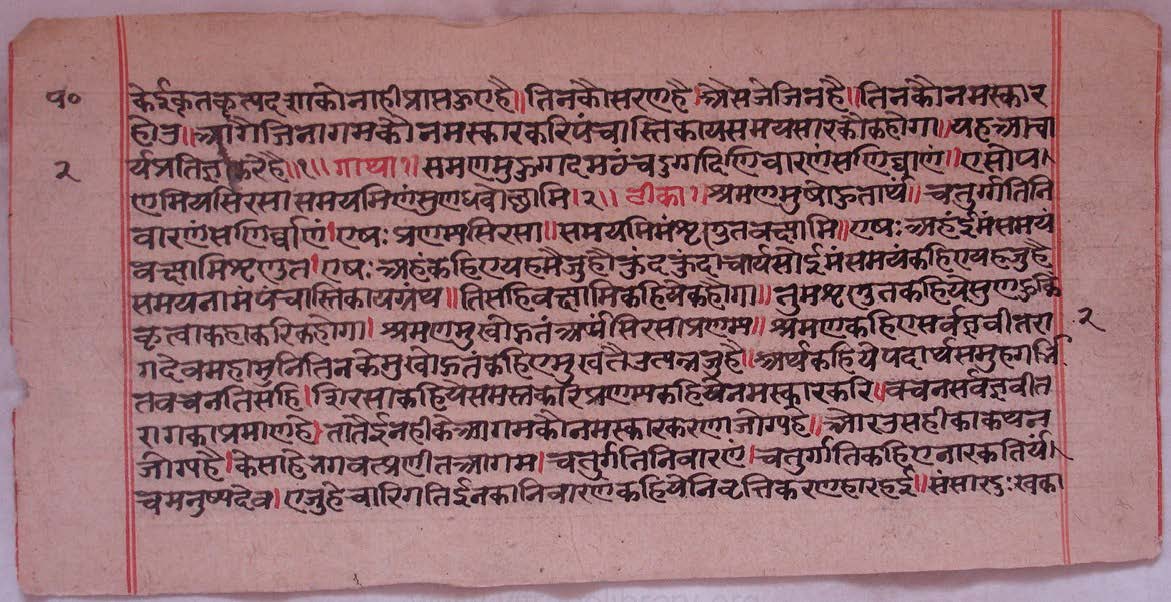 १० केईकृतकृत्यदशाकौनाहीप्राप्तऊएहै॥तिनकौसरणहै।औसेजेजिनहै॥तिनकौनमस्कार
होउ॥आगैजिनागमकौनमस्कारकरिपंचास्तिकायसमयसारकौकहौगा॥यहआचा
२ र्यप्रतिज्ञाकरेहै॥१॥गाथा॥समणमुऊग्गदमठंचदुग्गदिणिवारणंसणिव्वाणं॥एसोप।
णमियसिरसासमयमिणंसुणधवोछामि।२॥टीका॥श्रमणमुषोऊतार्थं॥चतुर्गतिनि
वारणंसणिर्वाणं।एषःप्रणम्यसिरसा॥समयमिमंश्रृणुतवक्ष्यामि॥एषःअहंईमंसमयं
वक्ष्यामिश्रृणुत।एषःअहंकहिएयहमैजुहौकुंदकुंदाचार्यसोईमंसमयंकहिएयहजुहै
समयनामपंचास्तिकायग्रंथ॥तिसहिवक्ष्यामिकहियेकहौगा॥तुमश्रृणुतकहियैसुणऊकिं
कृत्वाकहाकरिकहौगा।श्रमणमुखोऊतंअर्थंसिरसाप्रणम्य॥श्रमणकहिएसर्वज्ञवीतरा २
गदेवमहामुनितिनकेमुखोऊतंकहिएमुखतैउत्पन्नजुहै॥अर्थकहियेपदार्थसमुहगर्भि
तवचनतिसहि।शिरसाकहियेसमस्तककरिप्रणम्यकहियेनमस्कारकरि॥वचनसर्वज्ञवीत
रागकाप्रमाणहै।तातैईनहीकेआगमकौनमस्कारकरणाजोग्यहै॥औरउसहीकाकथन
जोग्यहै।केसाहैभगवत्प्रणीतआगम।चतुर्गतिनिवारणं।चतुर्गतिकहिएनारकतिर्यं।
चमनुष्यदेव।एजुहैचारिगतिईनकानिवारणंकहियेनिवृत्तिकरणहारहई॥संसारदुःखका